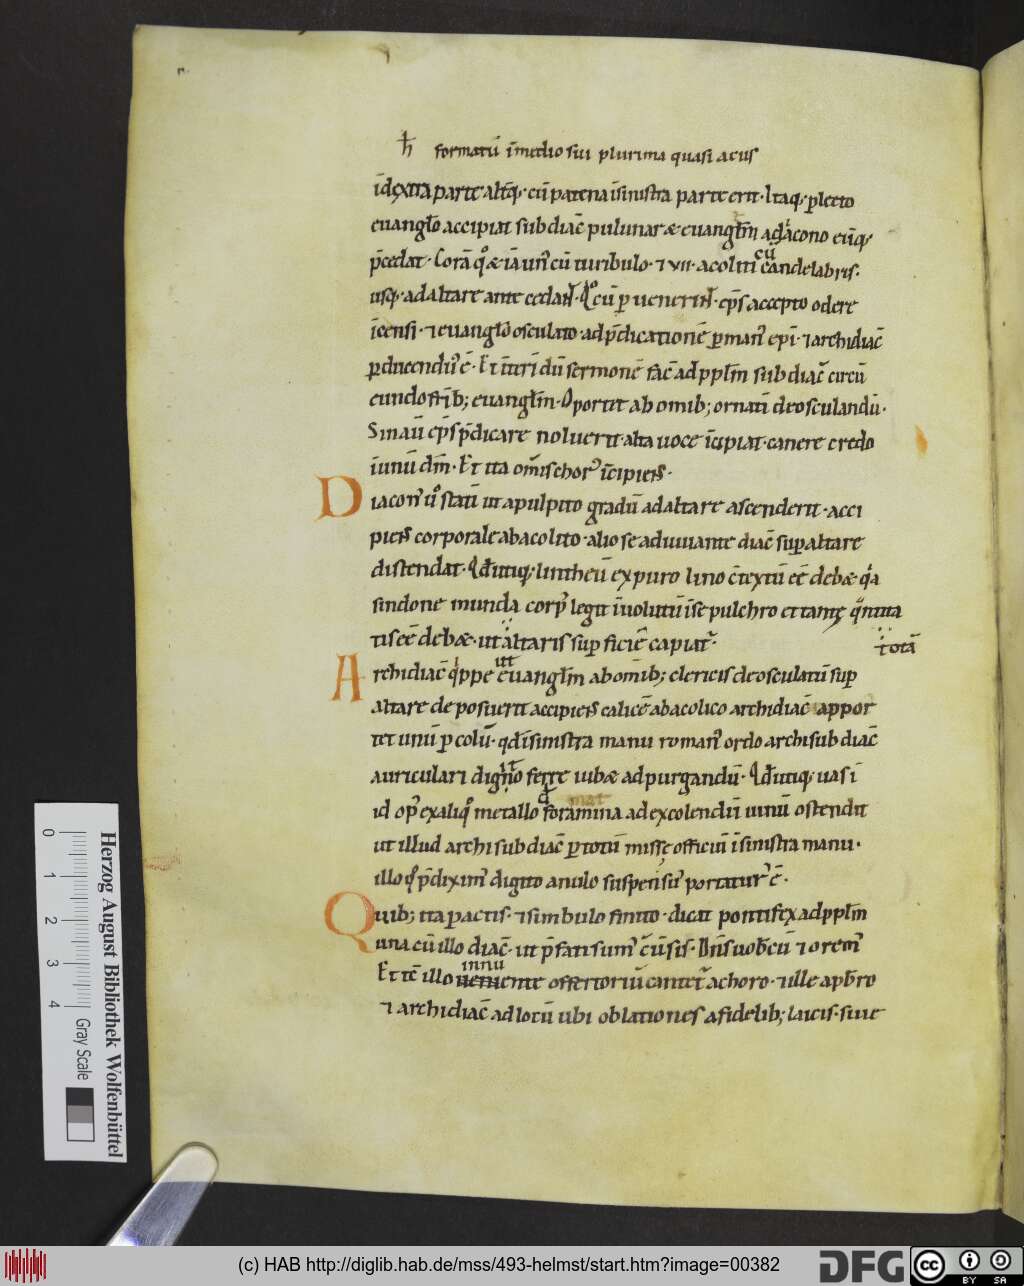 ħ formatū īmedio sui plurima quasi acus
īdextra parte altq; cū patena īsinistra parte erit. Itaq; plecto
euanglo accipiat subdiac̄ puluinar & euangłm adiacono eūq;
p̄cedat. Corā qo & iā un cū turibulo. ⁊ vii. acoliti cū candelabris.
usq; ad altare antecedant. Qo cū puenerint. ep̄s accepto odore
īcensi. ⁊ euangło osculato. ad p̄dicationē pman epi. ⁊ archidiac̄
pducendus ē. Et īterī dū sermonē fac̄ ad ppłm subdiac̄ circū
eundo frīb; euangłm. Oportet ab omīb; ornati deosculandū.
Sin aū ep̄s p̄dicare noluerit. alta uoce īcipiat. canere credo
īunū dm̄. Et ita omīs chorus īcipiens.
Diacon uo statū ut apulpito gradū ad altare ascenderit. acci
piens corporale abacolito. alio se adiuuante diac̄ sup altare
distendat. Qd utiq; lintheū ex puro lino c̄textū ee debæ. qa
sindone munda corp legit īuolutū īse pulchro et tantę qntita
tis eē debæ. ut altaris supficiē capiat.
totā
Archidiac̄ qippe ut euangłm ab omīb; clericis deosculatū sup
altare deposuerit accipiens calicē abacolito archidiac̄ appor
tet unū p colū. qd īsinistra manu roman ordo archisubdiac̄
auriculari digito ferre iubæ ad purgandū. Qd utiq; uas ī
id op exaliqo metallo foramina ad excolendū uinū ostendit
ut illud archisubdiac̄ p totū missę officiū īsinistra manu.
illo qo p̄dixim digito anulo suspensū portatur ē.
Quib; ita pactis. ⁊ simbulo finito. dicat pontifex ad ppłm
una cū illo diac̄. ut p̄fati sum cūsis. Dn̄s uobcū ⁊ orem
Et tē illo innu ueniente offertoriū cantet achoro. ⁊ ille apbro
⁊ archidiac̄ ad locū ubi oblationes afidelib; laicis. siue
Herzog August Bibliothek Wolfenbüttel
0 1 2 3 4 Gray Scale
(c) HAB http://diglib.hab.de/mss/493-helmst/start.htm?image=00382
DFG cc BY SA